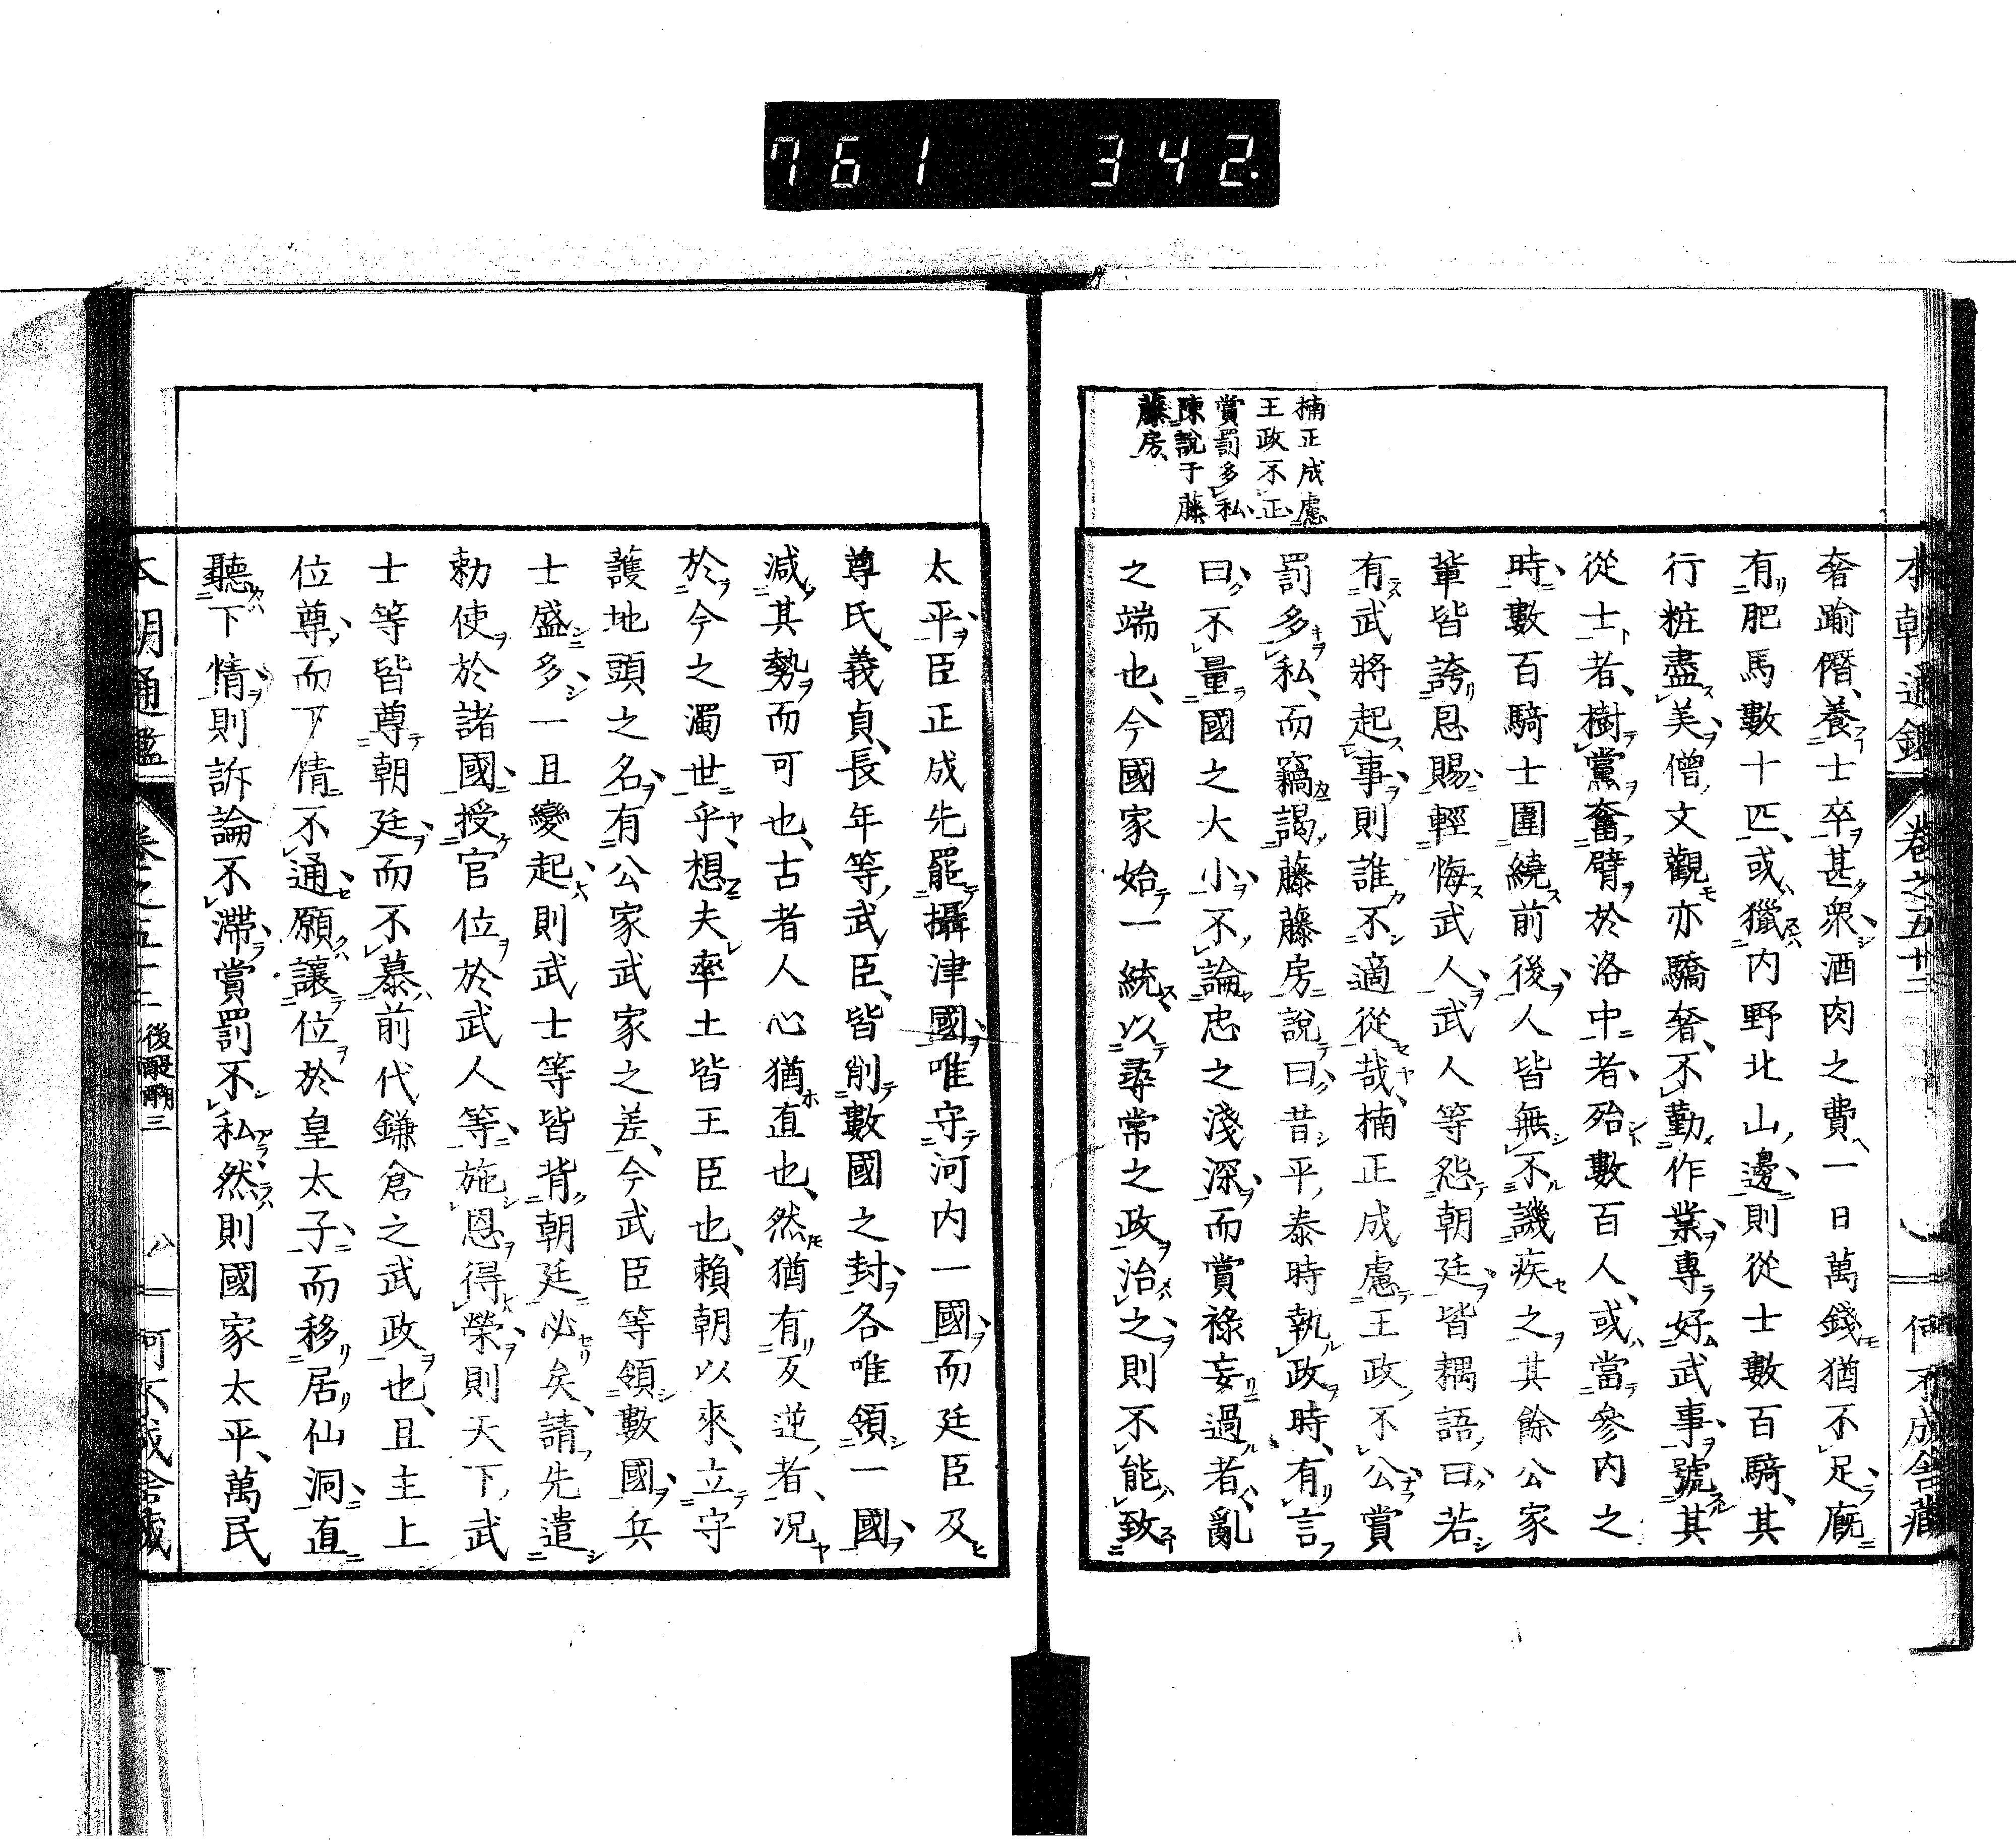 761 342.
本朝通鑑 卷之五十二 何不成舍藏
楠正成慮
王政不正
賞罰多私
陳說于藤
藤房
奢踰僭養士卒甚衆酒肉之費一日萬錢猶不足廐
有肥馬數十匹或獵內野北山邊則從士數百騎其
行粧盡美僧文觀亦驕奢不勤作業專好武事號其
從士者樹黨奮臂於洛中者殆數百人或當參內之
時數百騎士圍繞前後人皆無不譏疾之其餘公家
輩皆誇恩賜輕侮武人武人等怨朝廷皆耦語曰若
有武將起事則誰不適從哉楠正成慮王政不公賞
罰多私而竊謁藤藤房說曰昔平泰時執政時有言
曰不量國之大小不論忠之淺深而賞祿妄過者亂
之端也今國家始一統以尋常之政治之則不能致
太平臣正成先罷攝津國唯守河內一國而廷臣及
尊氏義貞長年等武臣皆削數國之封各唯領一國
減其勢而可也古者人心猶直也然猶有反逆者况
於今之濁世乎想夫率土皆王臣也賴朝以來立守
護地頭之名有公家武家之差今武臣等領數國兵
士盛多一旦變起則武士等皆背朝廷必矣請先遣
勅使於諸國授官位於武人等施恩得榮則天下武
士等皆尊朝廷而不慕前代鎌倉之武政也且主上
位尊而下情不通願讓位於皇太子而移居仙洞直
聽下情則訴論不滯賞罰不私然則國家太平萬民
本朝通鑑 卷之五十二 後醍醐三 八 何不成舍藏